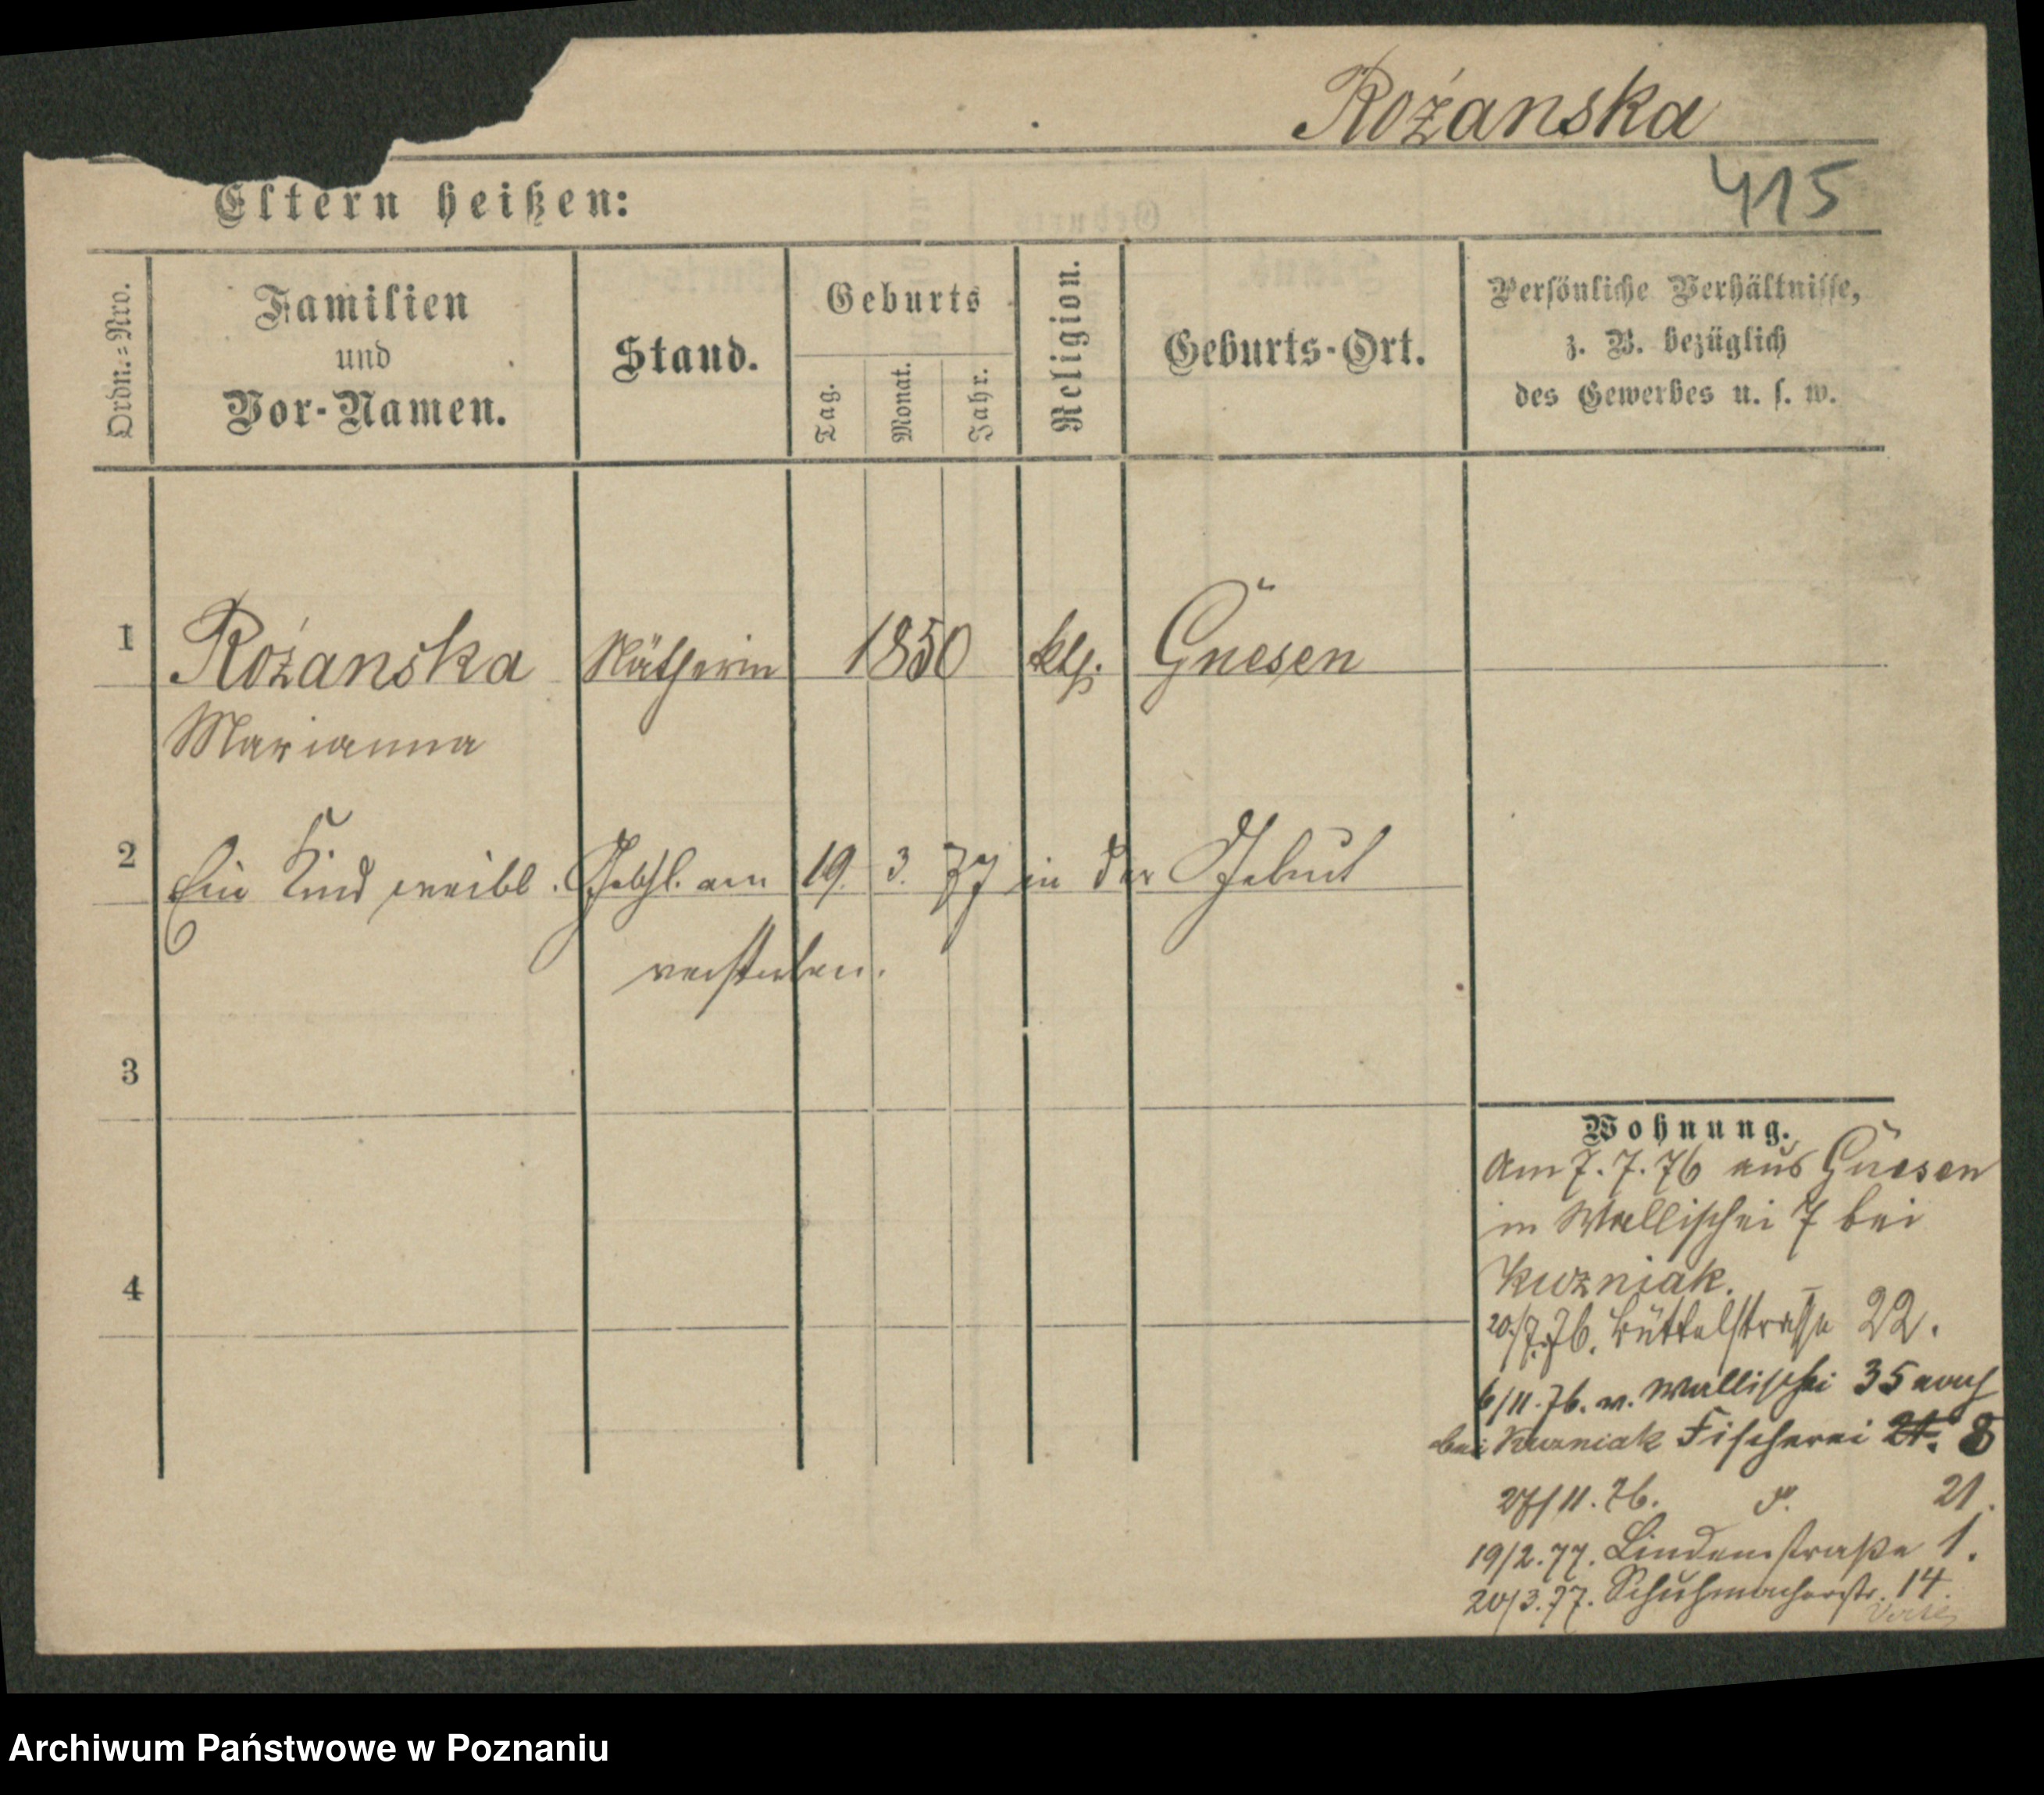 Rożanska
415
Eltern heißen:
Ordn.=Nro.
Familien
und
Vor-Namen.
Stand.
Geburts
Tag.
Monat.
Jahr.
Religion.
Geburts-Ort.
Persönliche Verhältnisse,
z. B. bezüglich
des Gewerbes u. s. w.
1 Rożanska Nätherin 1850 kth. Gnesen
Marianna
2 Ein Kind weibl. Geschl. am 19. 3. 77 in der Geburt
verstorben.
3
4
Wohnung.
Am 7.7.76 aus Gnesen
in Wallischei 7 bei
Kuzniak.
20/7.76. Büttelstrasse 22.
6/11.76. v. Wallischei 35 nach
bei Kuzniak Fischerei 21. 8
27/11.76. 21.
19/2.77. Lindenstraße 1.
20/3.77. Schuhmacherstr. 14.
Archiwum Państwowe w Poznaniu